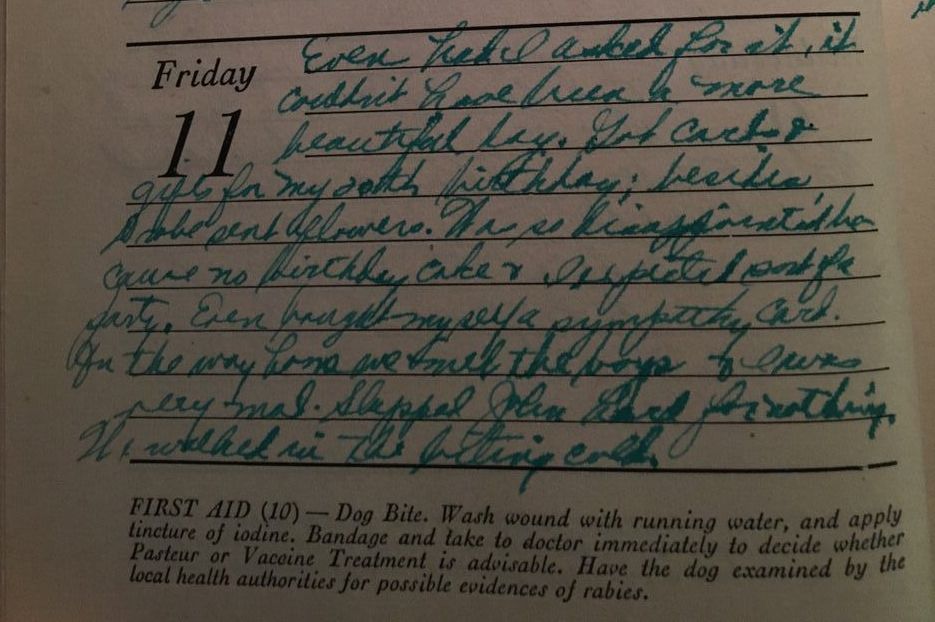 Friday
11
Even had I asked for it, it
couldn't have been a more
beautiful day. Got cards &
gifts for my 20th birthday; besides,
sent flowers. Was so disappointed be
cause no birthday cake & I expected sort of a
party. Even bought myself a sympathy card.
On the way home we met the boys & I was
very mad. Slapped John hard for nothing.
We walked in the biting cold.
FIRST AID (10) — Dog Bite. Wash wound with running water, and apply
tincture of iodine. Bandage and take to doctor immediately to decide whether
Pasteur or Vaccine Treatment is advisable. Have the dog examined by the
local health authorities for possible evidences of rabies.